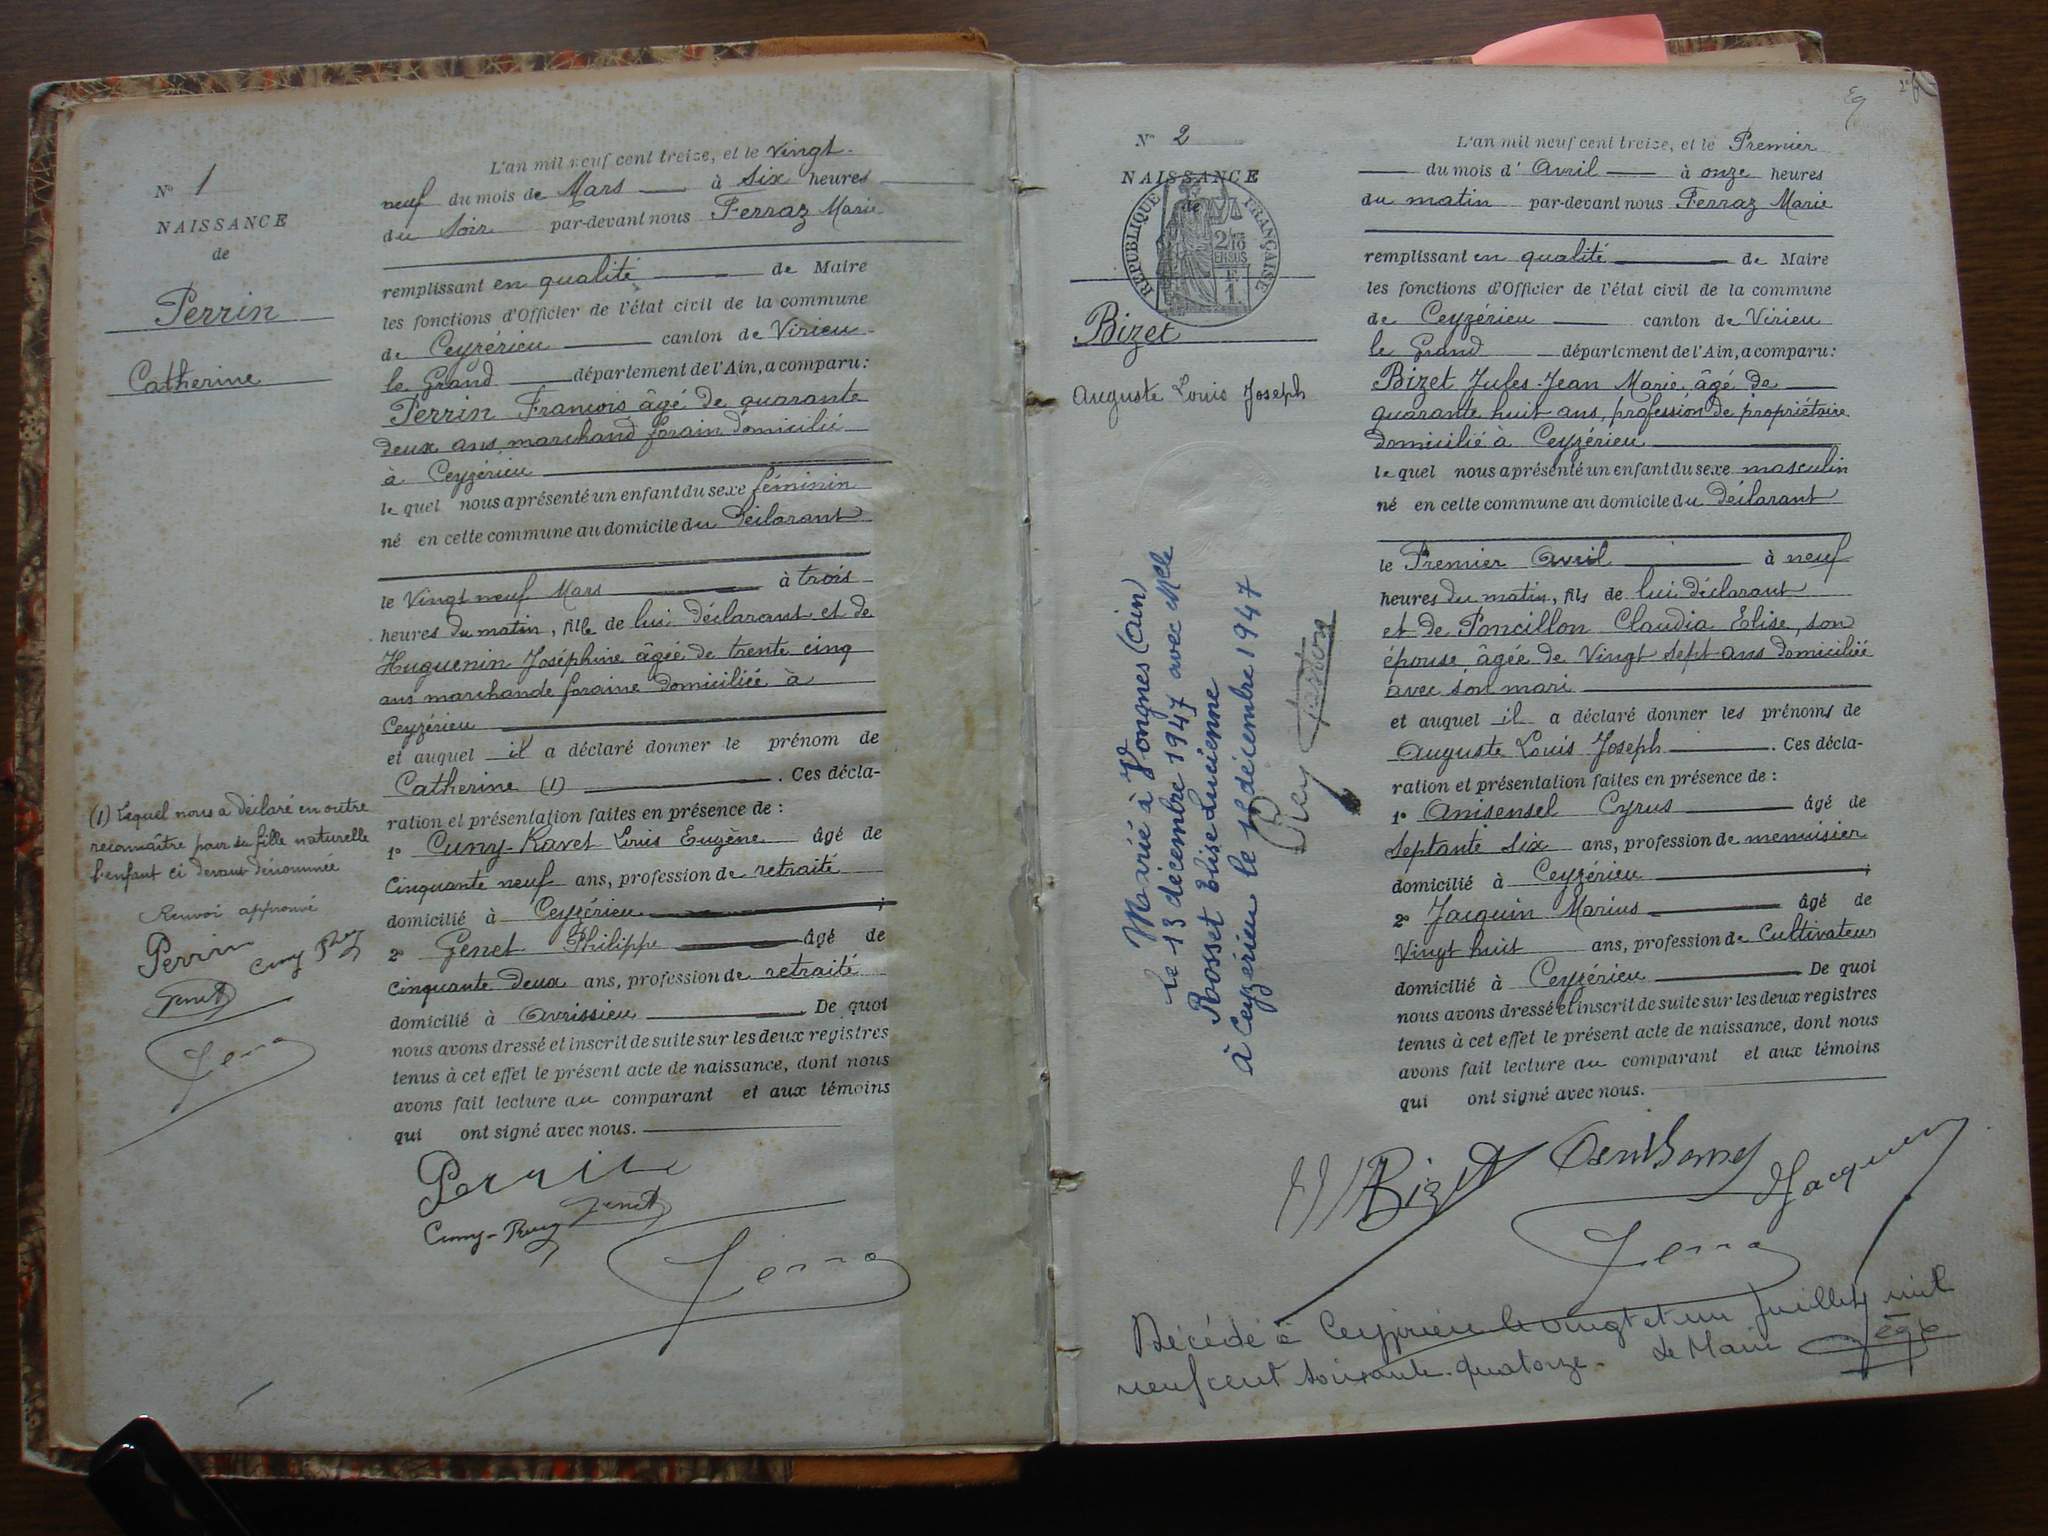 N° 1
NAISSANCE
de
Perrin
Catherine
L'an mil neuf cent treize, et le vingt-
neuf du mois de Mars à six heures
du soir par-devant nous Ferraz Marie
remplissant en qualité de Maire
les fonctions d'Officier de l'état civil de la commune
de Ceyzérieu canton de Virieu
le Grand département de l'Ain, a comparu :
Perrin François âgé de quarante
deux ans marchand forain domicilié
à Ceyzérieu
le quel nous a présenté un enfant du sexe féminin
né en cette commune au domicile du déclarant
le Vingt neuf Mars à trois
heures du matin, fille de lui déclarant et de
Huguenin Joséphine âgée de trente cinq
ans marchande foraine domiciliée à
Ceyzérieu
et auquel il a déclaré donner le prénom de
Catherine (1) . Ces décla-
ration et présentation faites en présence de :
1° Cuny-Ravet Louis Eugène âgé de
Cinquante neuf ans, profession de retraité
domicilié à Ceyzérieu ;
2° Genet Philippe âgé de
cinquante deux ans, profession de retraité
domicilié à Avrissieu . De quoi
nous avons dressé et inscrit de suite sur les deux registres
tenus à cet effet le présent acte de naissance, dont nous
avons fait lecture au comparant et aux témoins
qui ont signé avec nous.
Perrin
Genet
(1) Lequel nous a déclaré en outre
reconnaître pour sa fille naturelle
l'enfant ci devant dénommée
Renvoi approuvé
Perrin
Genet
N° 2
NAISSANCE
de
RÉPUBLIQUE FRANÇAISE
Bizet
Auguste Louis Joseph
L'an mil neuf cent treize, et le Premier
du mois d' Avril à onze heures
du matin par-devant nous Ferraz Marie
remplissant en qualité de Maire
les fonctions d'Officier de l'état civil de la commune
de Ceyzérieu canton de Virieu
le Grand département de l'Ain, a comparu :
Bizet Jules-Jean Marie âgé de
quarante huit ans, profession de propriétaire
domicilié à Ceyzérieu
le quel nous a présenté un enfant du sexe masculin
né en cette commune au domicile du déclarant
le Premier Avril à neuf
heures du matin, fils de lui déclarant
et de Poncillon Claudia Elise, son
épouse âgée de Vingt sept ans domiciliée
avec son mari
et auquel il a déclaré donner les prénoms de
Auguste Louis Joseph . Ces décla-
ration et présentation faites en présence de :
1° Anisensel Cyrus âgé de
Septante six ans, profession de menuisier
domicilié à Ceyzérieu ;
2° Jacquin Marius âgé de
Vingt huit ans, profession de Cultivateur
domicilié à Ceyzérieu De quoi
nous avons dressé et inscrit de suite sur les deux registres
tenus à cet effet le présent acte de naissance, dont nous
avons fait lecture au comparant et aux témoins
qui ont signé avec nous.
Bizet
Jacquin
Marié à Vongnes (Ain)
le 13 décembre 1947 avec Melle
Rosset Elise Lucienne
à Ceyzérieu le décembre 1947
Décédé à Ceyzérieu le vingt et un Juillet mil
neuf cent soixante-quatorze. Le Maire